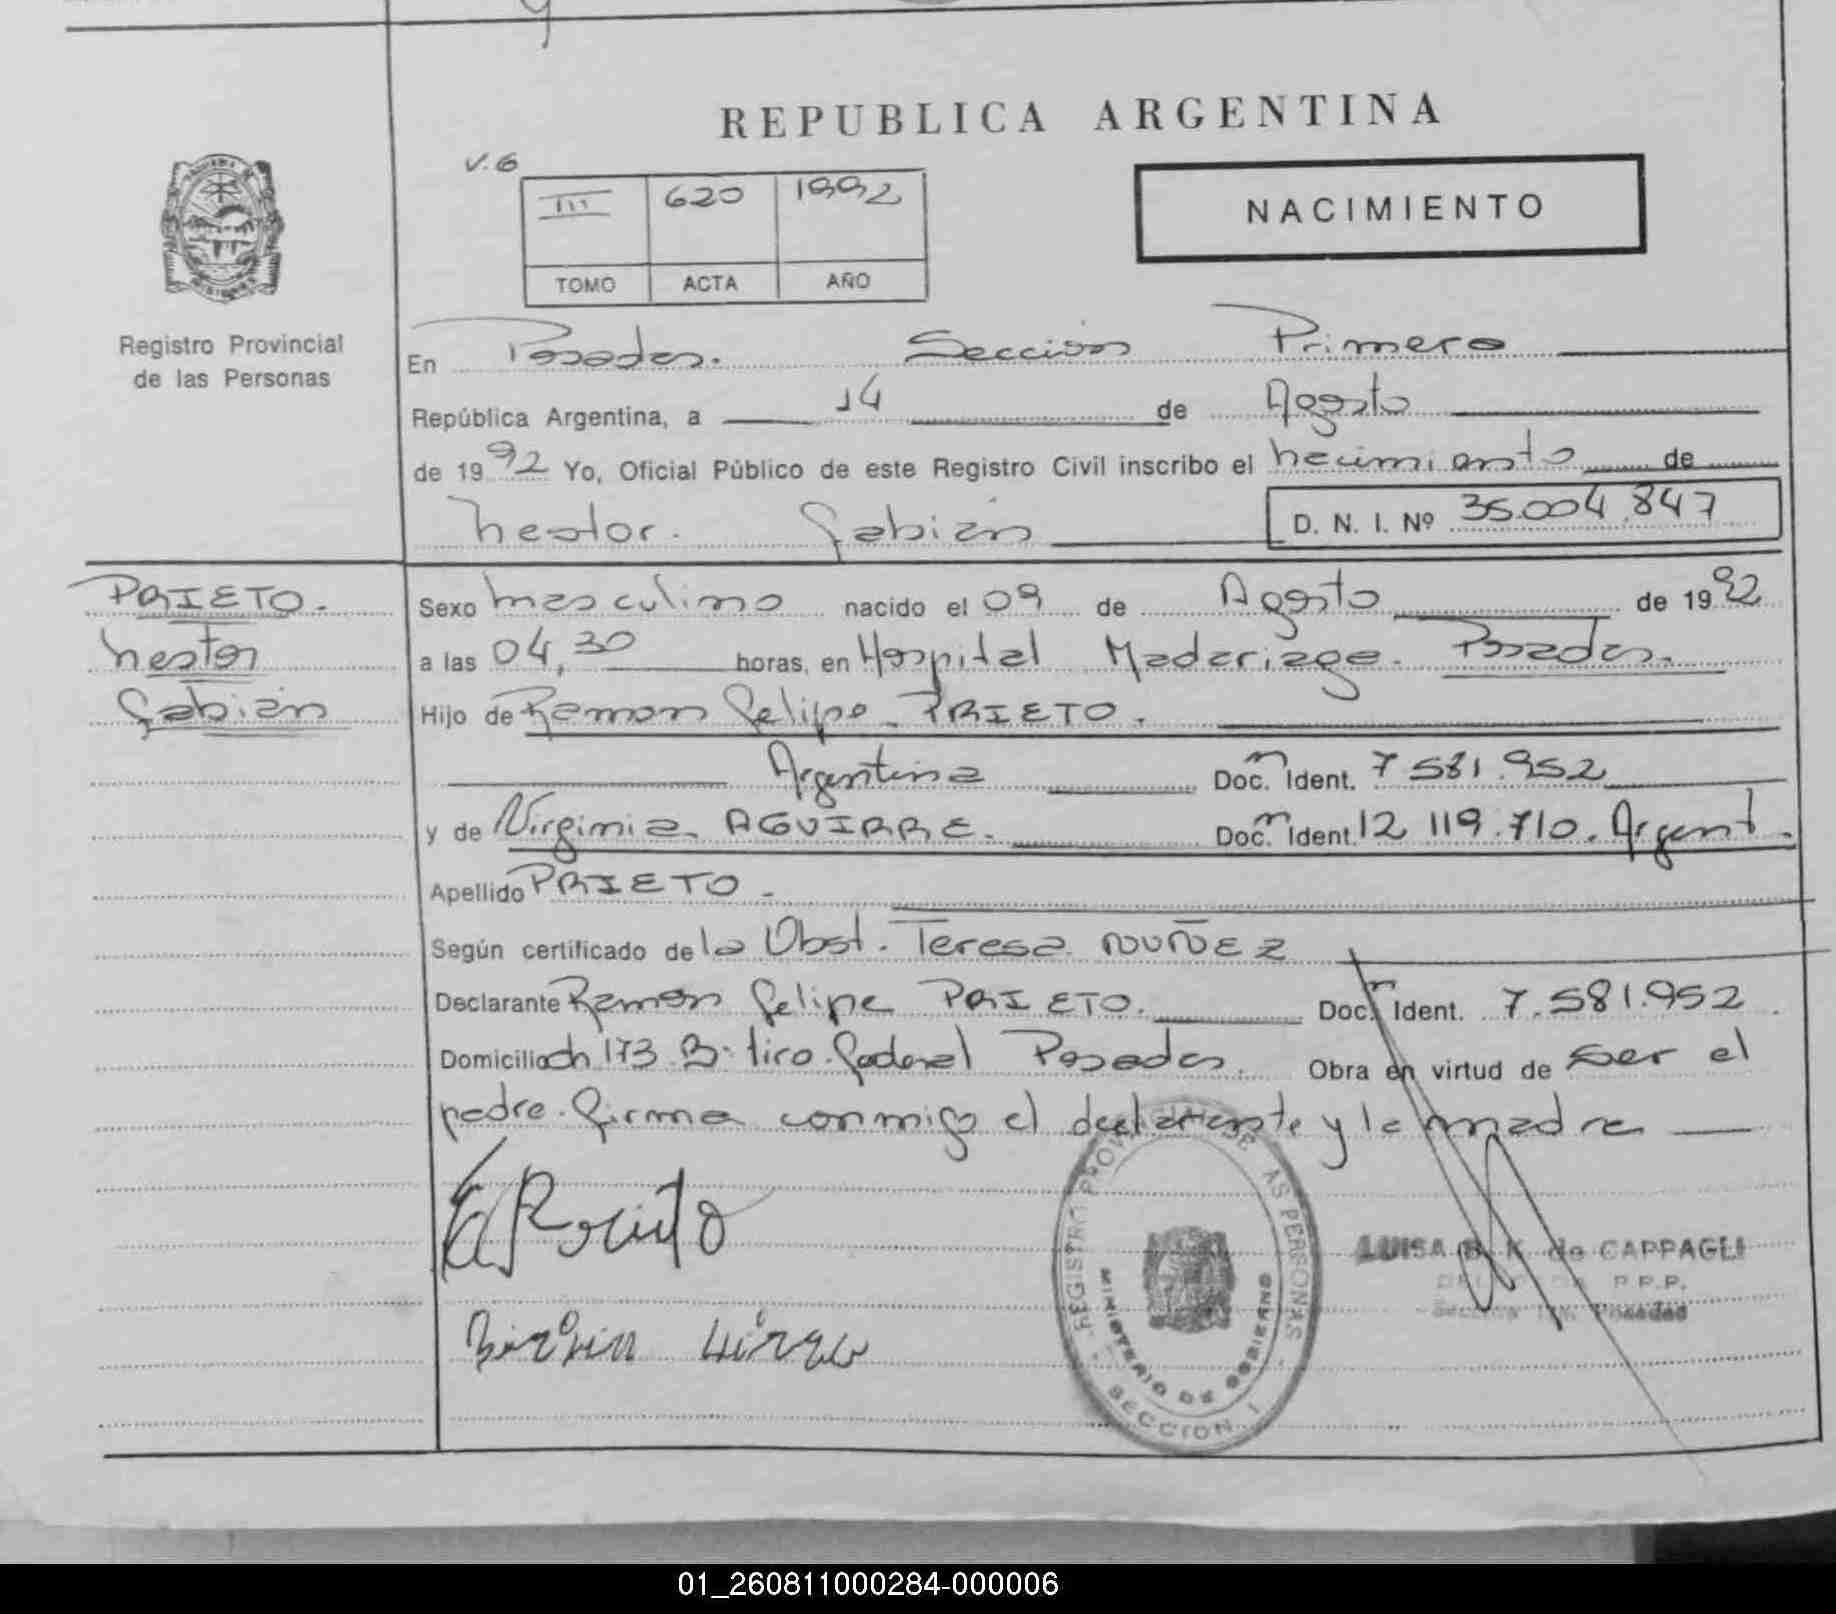 REPUBLICA ARGENTINA
V.6
III 620 1992
TOMO ACTA AÑO
NACIMIENTO
Registro Provincial
de las Personas
En Posadas. Sección Primera
República Argentina, a 14 de Agosto
de 1992 Yo, Oficial Público de este Registro Civil inscribo el nacimiento de
Nestor Fabián D. N. I. Nº 35.004.847
PRIETO.
Nestor
Fabián
Sexo masculino nacido el 09 de Agosto de 1992
a las 04,30 horas, en Hospital Madariaga. Posadas.
Hijo de Ramon Felipe PRIETO.
Argentina Doc. Ident. 7.581.952
y de Virginia AGUIRRE. Doc. Ident. 12.119.710. Argent.
Apellido PRIETO.
Según certificado de la Obst. Teresa NUÑEZ
Declarante Ramon Felipe PRIETO. Doc. Ident. 7.581.952
Domicilio ch 173 B: tiro federal Posadas. Obra en virtud de ser el
padre. firma conmigo el declarante y la madre
REGISTRO PERSONAS
MINISTERIO DE GOBIERNO
SECCION I
LUISA K. de CAPPAGLI
P.P.
Posadas
01_260811000284-000006